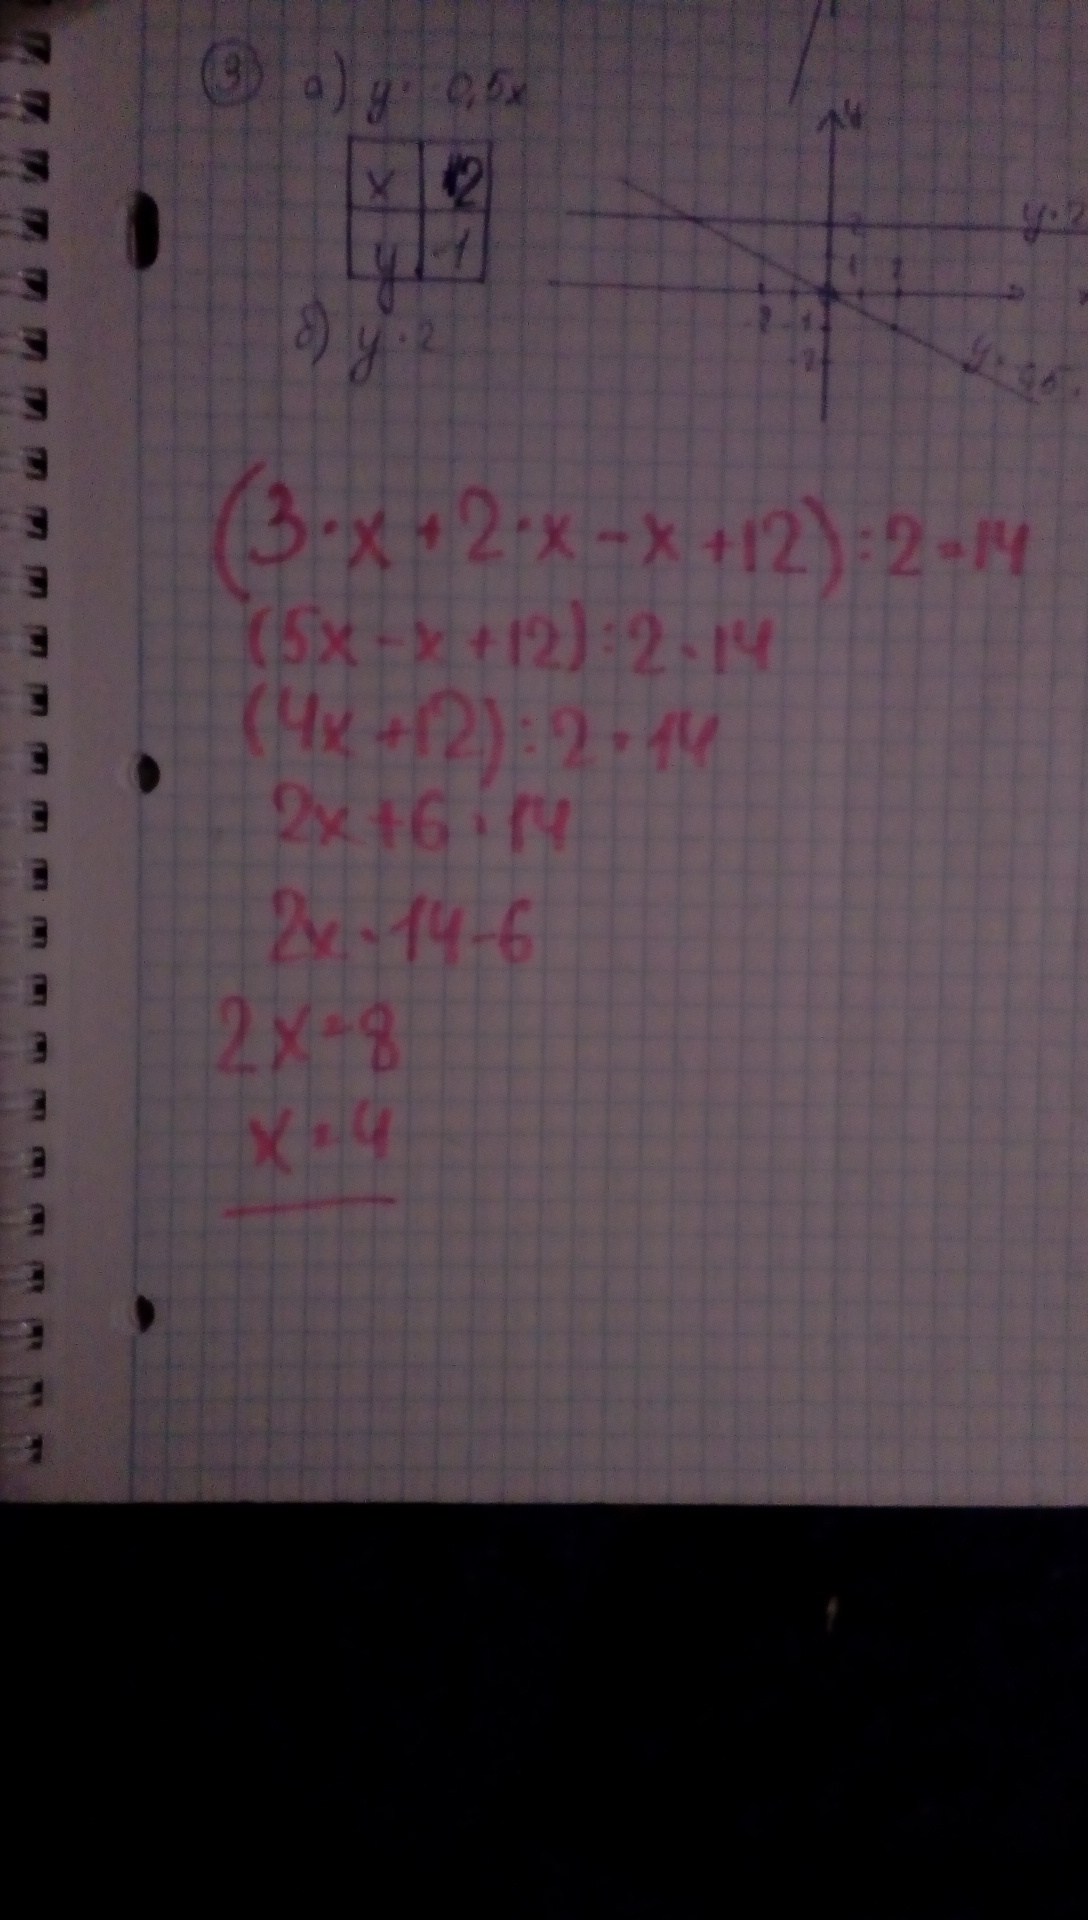 3 а) y = 0,5x
x 2
y -1
б) y = 2
y
y = 2
2
1 2
-2 -1
-2
y = 0,5
(3·x+2·x-x+12):2=14
(5x-x+12):2=14
(4x+12):2=14
2x+6=14
2x=14-6
2x=8
x=4